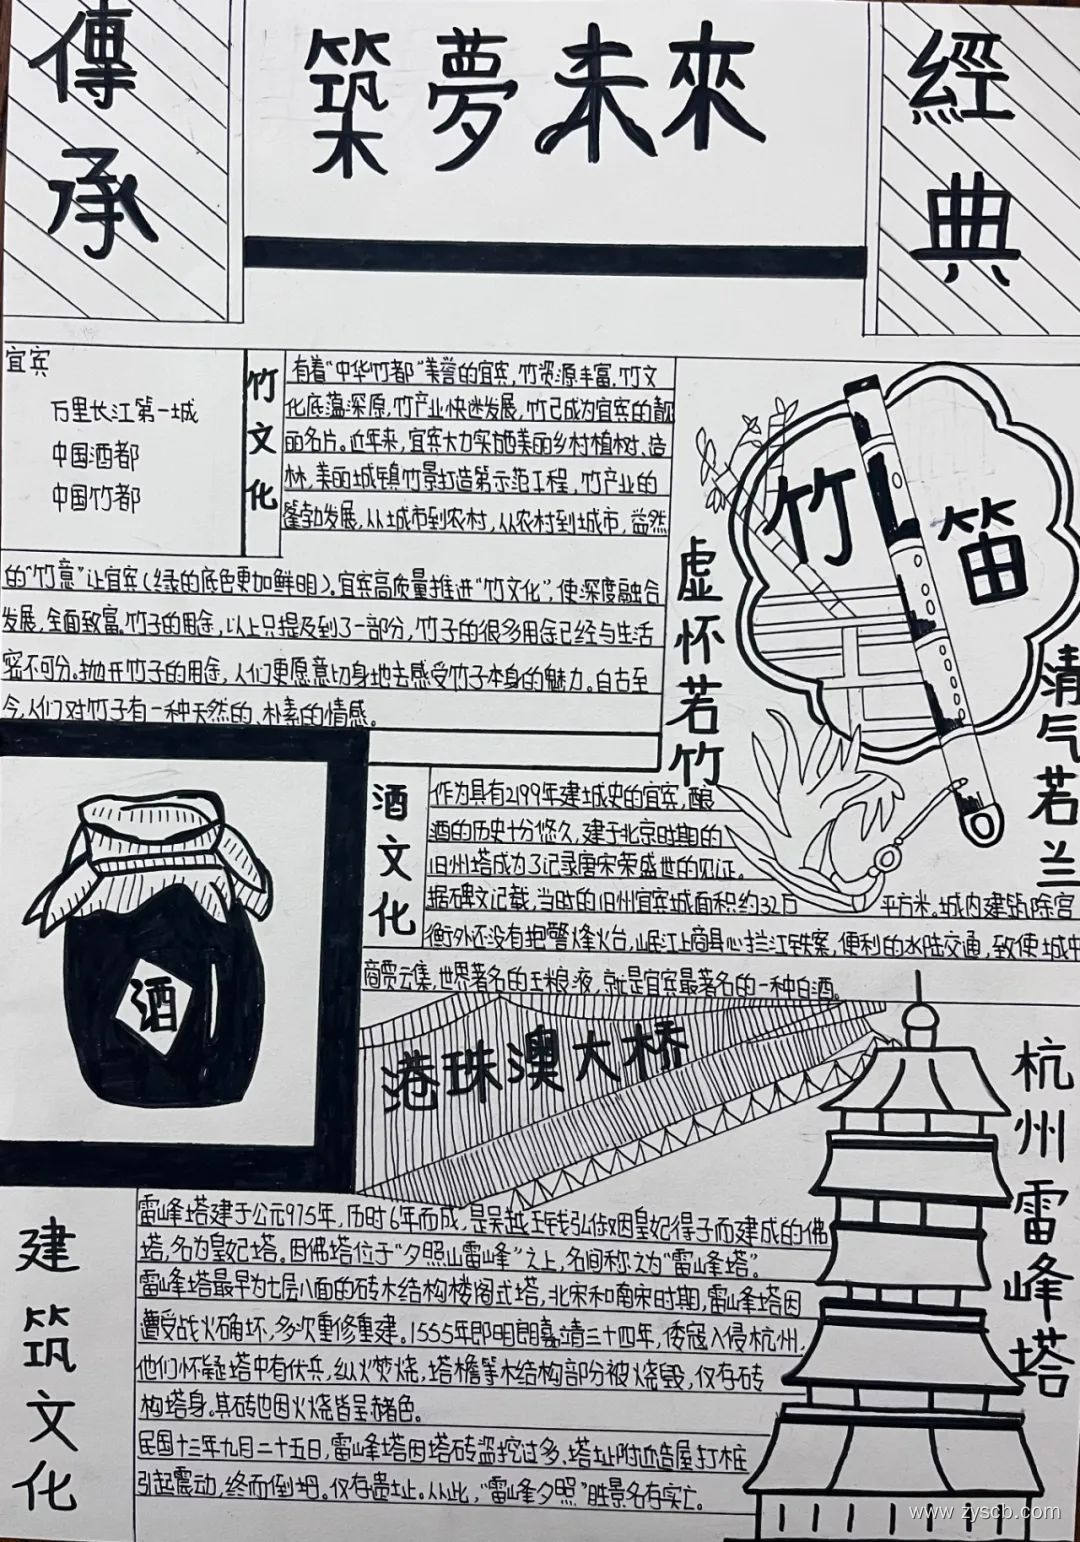 傳承
築夢未來
經典
宜宾
万里长江第一城
中国酒都
中国竹都
竹文化
有着“中华竹都”美誉的宜宾,竹资源丰富,竹文
化底蕴深厚,竹产业快速发展,竹已成为宜宾的靓
丽名片。近年来,宜宾大力实施美丽乡村植树、造
林,美丽城镇竹景打造等示范工程,竹产业的
蓬勃发展,从城市到农村,从农村到城市,盎然
的“竹意”让宜宾(绿的底色更加鲜明)。宜宾高质量推进“竹文化”,使深度融合
发展,全面致富。竹子的用途,以上只提及到了一部分,竹子的很多用途已经与生活
密不可分。抛开竹子的用途,人们更愿意切身地去感受竹子本身的魅力。自古至
今,人们对竹子有一种天然的、朴素的情感。
竹笛
虚怀若竹
清气若兰
酒
酒文化
作为具有2199年建城史的宜宾,酿
酒的历史十分悠久,建于北京时期的
旧州塔成为了记录唐宋荣盛世的见证。
据碑文记载,当时的旧州宜宾城面积约32万
平方米。城内建筑除宫
衡外还没有炮警烽火台,岷江上商县心拦江铁案,便利的水陆交通,致使城中
商贾云集,世界著名的王粮液,就是宜宾最著名的一种白酒。
港珠澳大桥
杭州雷峰塔
建筑文化
雷峰塔建于公元975年,历时6年而成,是吴越王钱弘俶因皇妃得子而建成的佛
塔,名为皇妃塔。因佛塔位于“夕照山雷峰”之上,名间称之为“雷峰塔”。
雷峰塔最早为七层八面的砖木结构楼阁式塔,北宋和南宋时期,雷峰塔因
遭受战火确坏,多次重修重建。1555年即明朗嘉靖三十四年,倭寇入侵杭州,
他们怀疑塔中有伏兵,纵火焚烧,塔檐等木结构部分被烧毁,仅存砖
构塔身。其砖也因火烧皆呈赭色。
民国十三年九月二十五日,雷峰塔因塔砖盗挖过多、塔址附近造屋打桩
引起震动,终而倒坍。仅存遗址。从此,“雷峰夕照”胜景名存实亡。
www.zyscb.com